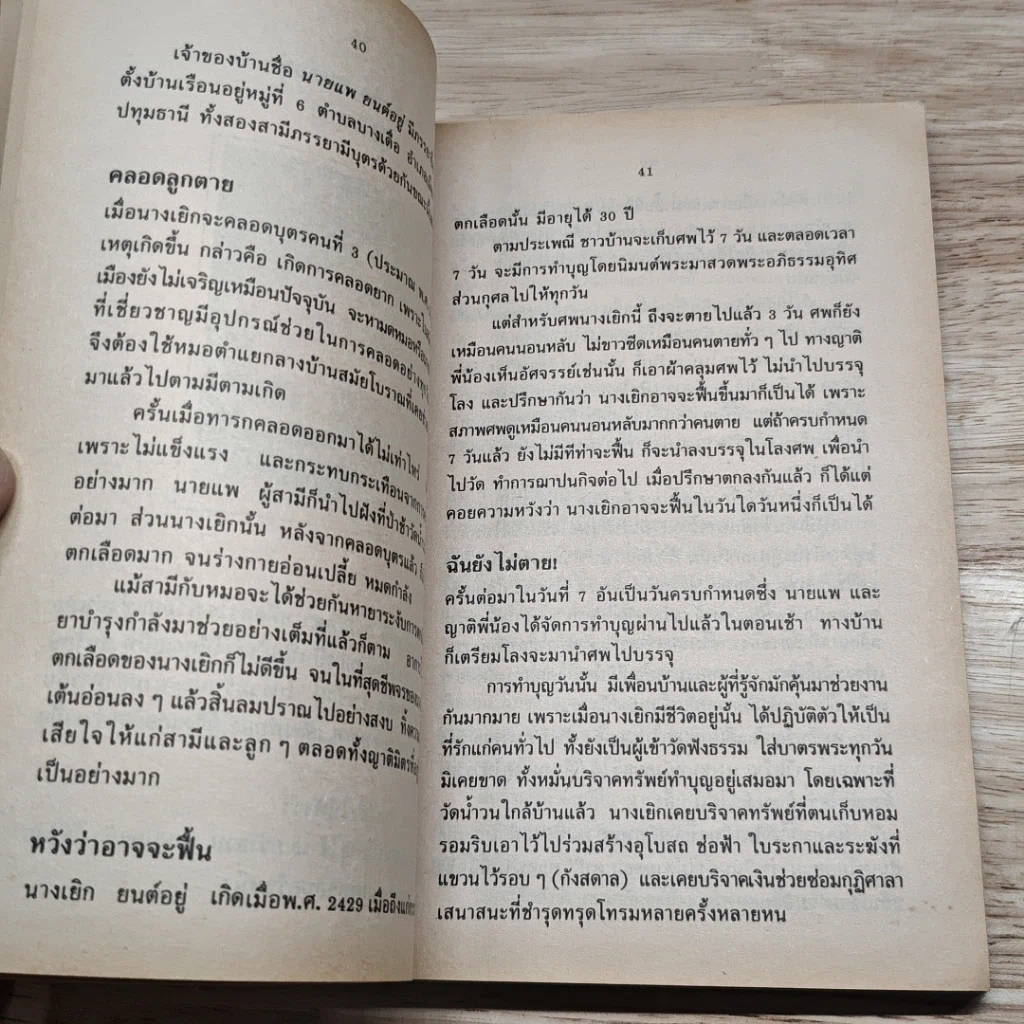 40
เจ้าของบ้านชื่อ นายแพ ยนต์อยู่
ตั้งบ้านเรือนอยู่หมู่ที่ 6 ตำบลบางเดื่อ
ปทุมธานี ทั้งสองสามีภรรยามีบุตรด้วยกัน
คลอดลูกตาย
เมื่อนางเยิกจะคลอดบุตรคนที่ 3 (ประมาณ พ.ศ.
เหตุเกิดขึ้น กล่าวคือ เกิดการคลอดยาก เพราะ
เมืองยังไม่เจริญเหมือนปัจจุบัน จะหามดหมอ
ที่เชี่ยวชาญมีอุปกรณ์ช่วยในการคลอดอย่าง
จึงต้องใช้หมอตำแยกลางบ้านสมัยโบราณที่
มาแล้วไปตามมีตามเกิด
ครั้นเมื่อทารกคลอดออกมาได้ไม่เท่าไหร่
เพราะไม่แข็งแรง และกระทบกระเทือนจาก
อย่างมาก นายแพ ผู้สามีก็นำไปฝังที่ป่าช้าวัด
ต่อมา ส่วนนางเยิกนั้น หลังจากคลอดบุตรแล้ว
ตกเลือดมาก จนร่างกายอ่อนเปลี้ย หมดกำลัง
แม้สามีกับหมอจะได้ช่วยกันหายาระงับการ
ยาบำรุงกำลังมาช่วยอย่างเต็มที่แล้วก็ตาม
ตกเลือดของนางเยิกก็ไม่ดีขึ้น จนในที่สุดชีพจร
เต้นอ่อนลง ๆ แล้วสิ้นลมปราณไปอย่างสงบ
เสียใจให้แก่สามีและลูก ๆ ตลอดทั้งญาติมิตร
เป็นอย่างมาก
หวังว่าอาจจะฟื้น
นางเยิก ยนต์อยู่ เกิดเมื่อพ.ศ. 2429 เมื่อถึงแก่
41
ตกเลือดนั้น มีอายุได้ 30 ปี
ตามประเพณี ชาวบ้านจะเก็บศพไว้ 7 วัน และตลอดเวลา
7 วัน จะมีการทำบุญโดยนิมนต์พระมาสวดพระอภิธรรมอุทิศ
ส่วนกุศลไปให้ทุกวัน
แต่สำหรับศพนางเยิกนี้ ถึงจะตายไปแล้ว 3 วัน ศพก็ยัง
เหมือนคนนอนหลับ ไม่ขาวซีดเหมือนคนตายทั่ว ๆ ไป ทางญาติ
พี่น้องเห็นอัศจรรย์เช่นนั้น ก็เอาผ้าคลุมศพไว้ ไม่นำไปบรรจุ
โลง และปรึกษากันว่า นางเยิกอาจจะฟื้นขึ้นมาก็เป็นได้ เพราะ
สภาพศพดูเหมือนคนนอนหลับมากกว่าคนตาย แต่ถ้าครบกำหนด
7 วันแล้ว ยังไม่มีทีท่าจะฟื้น ก็จะนำลงบรรจุในโลงศพ เพื่อนำ
ไปวัด ทำการฌาปนกิจต่อไป เมื่อปรึกษาตกลงกันแล้ว ก็ได้แต่
คอยความหวังว่า นางเยิกอาจจะฟื้นในวันใดวันหนึ่งก็เป็นได้
ฉันยังไม่ตาย!
ครั้นต่อมาในวันที่ 7 อันเป็นวันครบกำหนดซึ่ง นายแพ และ
ญาติพี่น้องได้จัดการทำบุญผ่านไปแล้วในตอนเช้า ทางบ้าน
ก็เตรียมโลงจะมานำศพไปบรรจุ
การทำบุญวันนั้น มีเพื่อนบ้านและผู้ที่รู้จักมักคุ้นมาช่วยงาน
กันมากมาย เพราะเมื่อนางเยิกมีชีวิตอยู่นั้น ได้ปฏิบัติตัวให้เป็น
ที่รักแก่คนทั่วไป ทั้งยังเป็นผู้เข้าวัดฟังธรรม ใส่บาตรพระทุกวัน
มิเคยขาด ทั้งหมั่นบริจาคทรัพย์ทำบุญอยู่เสมอมา โดยเฉพาะที่
วัดน้ำวนใกล้บ้านแล้ว นางเยิกเคยบริจาคทรัพย์ที่ตนเก็บหอม
รอมริบเอาไว้ไปร่วมสร้างอุโบสถ ช่อฟ้า ใบระกาและระฆังที่
แขวนไว้รอบ ๆ (กังสดาล) และเคยบริจาคเงินช่วยซ่อมกุฏิศาลา
เสนาสนะที่ชำรุดทรุดโทรมหลายครั้งหลายหน